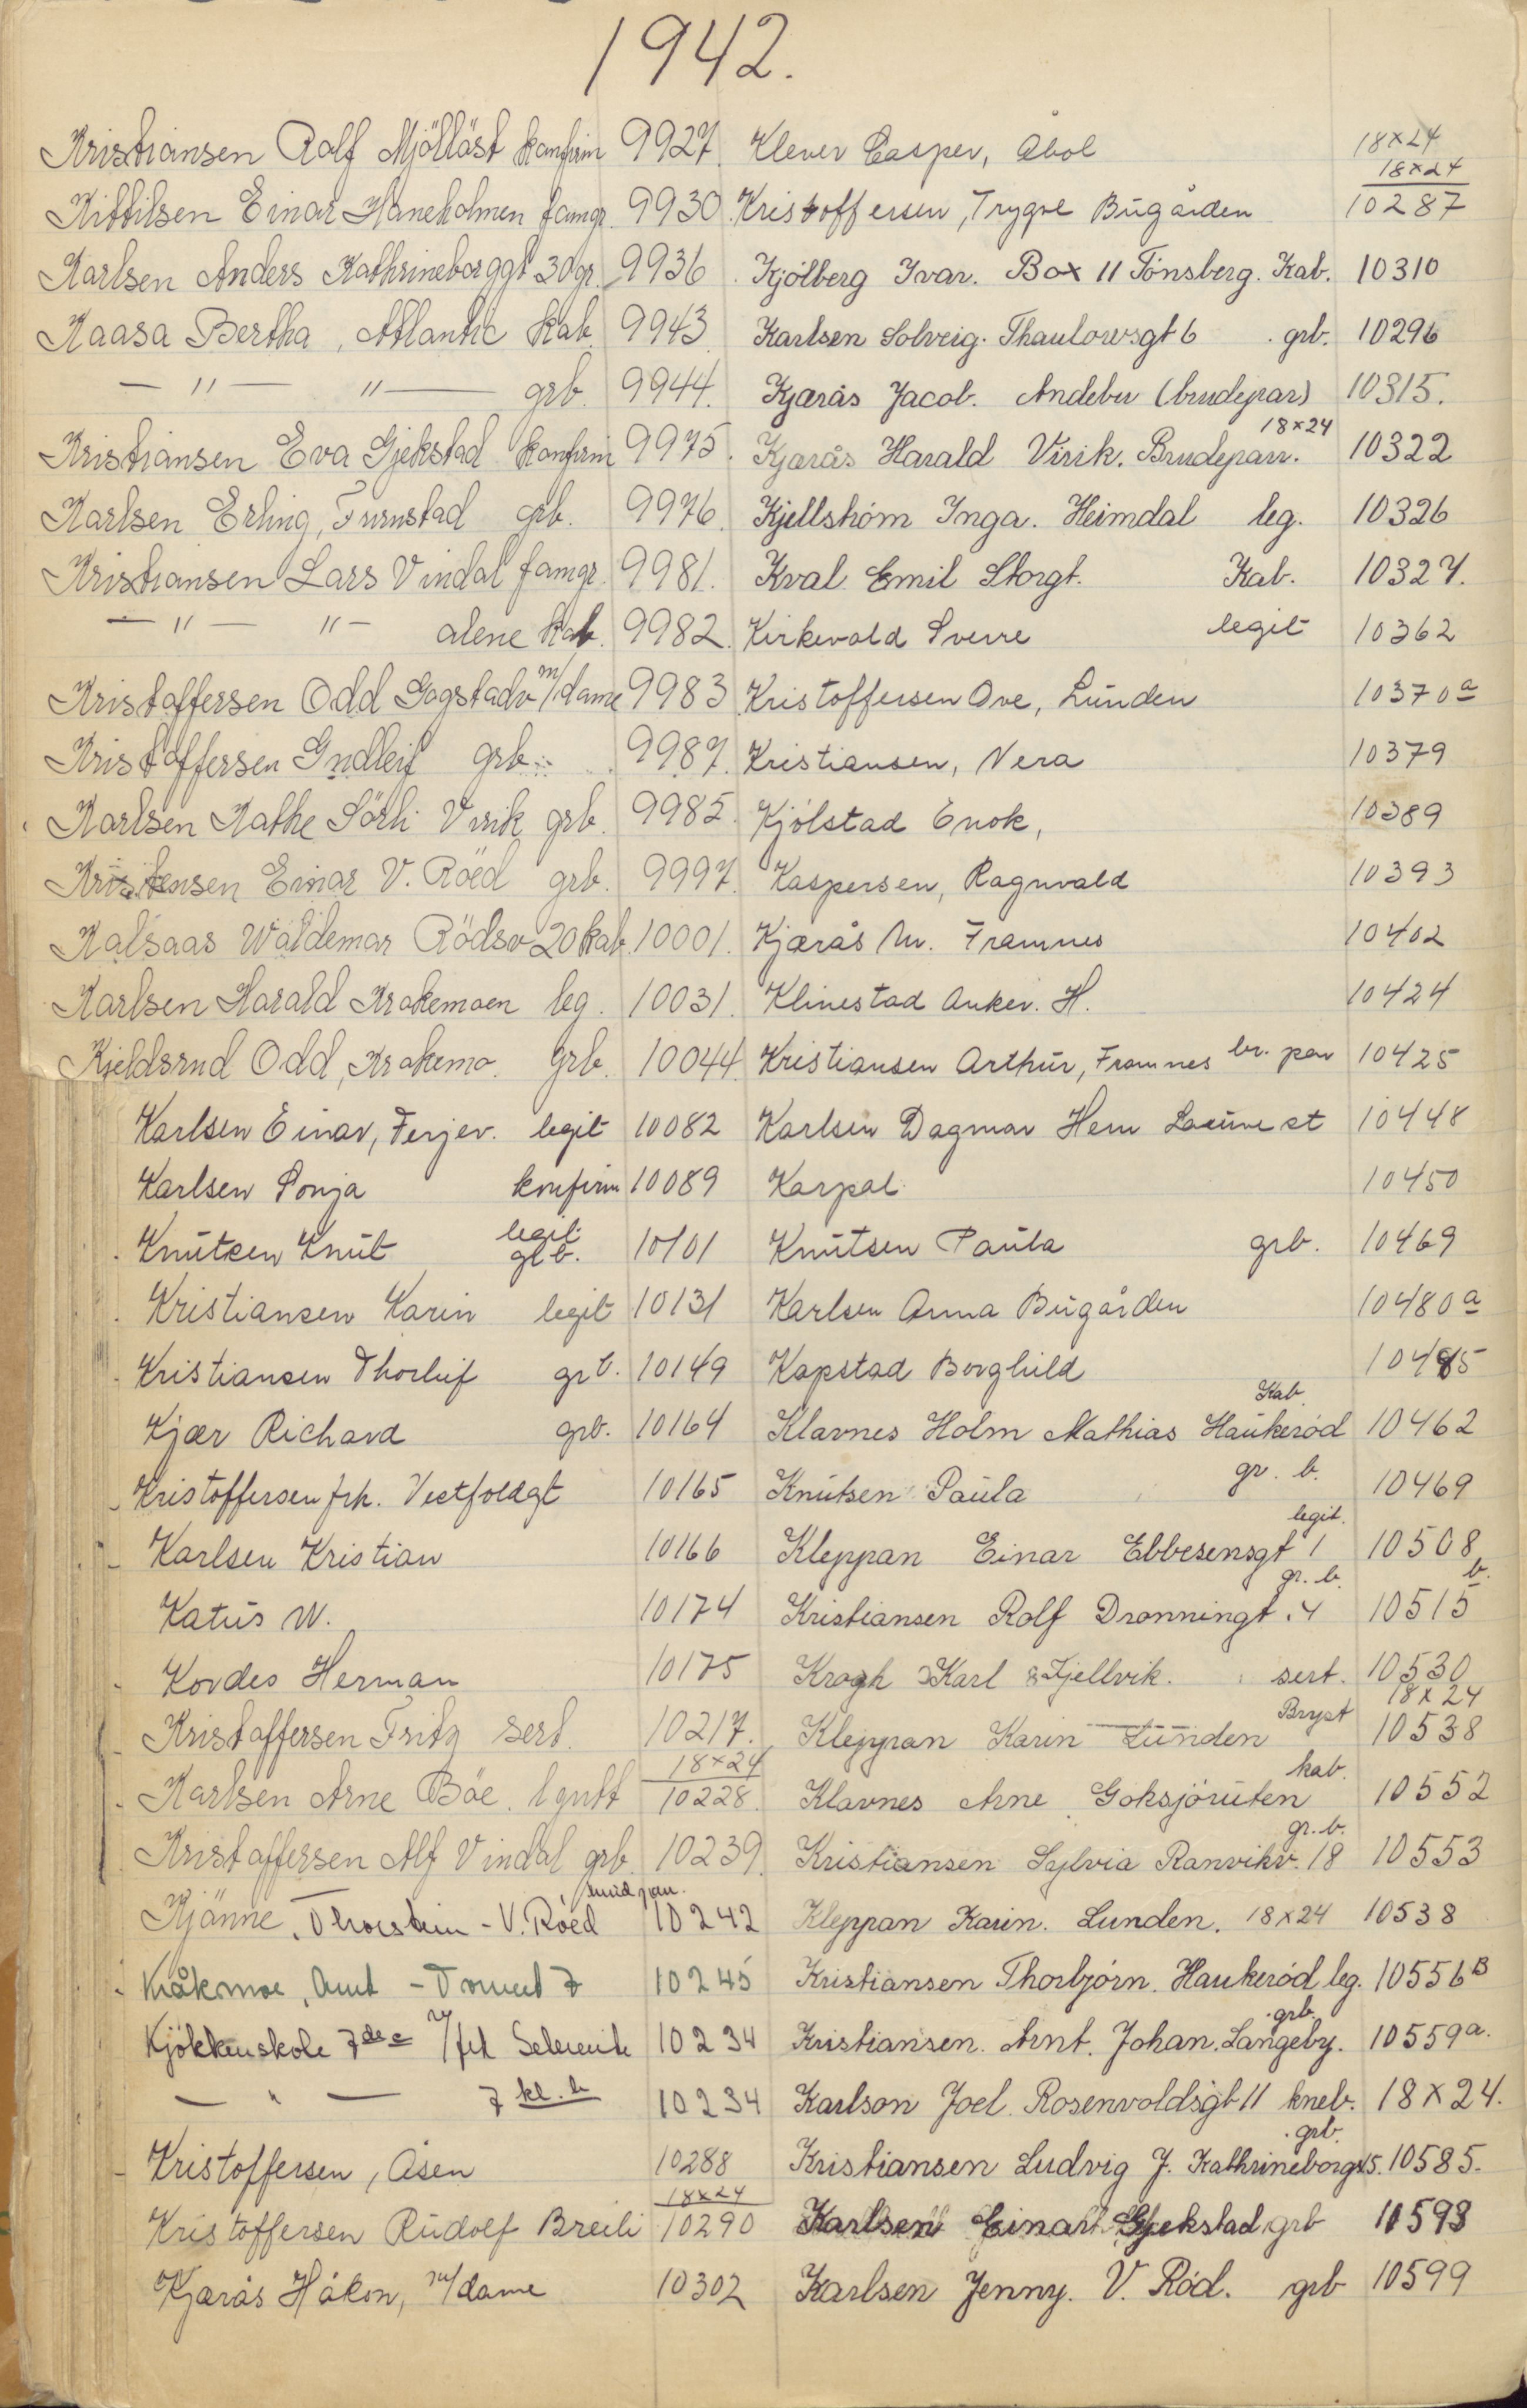 1942.
Kristiansen Rolf Mjölløst konfirm 9927.
Kittilsen Einar Haneholmen famgr. 9930
Karlsen Anders Kathrineborggt 30 gr. 9936
Kaasa Bertha, Atlantic kab. 9943
— " — " — grb. 9944.
Kristiansen Eva Gjekstad konfirm 9975.
Karlsen Erling, Furustad grb. 9976
Kristiansen Lars Vindal famgr. 9981.
— " — " — alene kab. 9982.
Kristoffersen Odd Gogstadv m/dame 9983
Kristoffersen Gudleif grb. 9987.
Karlsen Kathe Sörli Virik grb. 9985
Kristensen Einar V. Röed grb. 9997.
Kalsaas Waldemar Rödsv 20 kab. 10001.
Karlsen Harald Krakemoen leg. 10031.
Kjeldsrud Odd, Krakemo grb. 10044.
Karlsen Einar, Ferjev. legit 10082
Karlsen Sonja konfirm 10089
Knutsen Knut legit grb. 10101
Kristiansen Karin legit 10131
Kristiansen Thorleif grb. 10149
Kjær Richard grb. 10164
Kristoffersen frk. Vestfoldgt 10165
Karlsen Kristian 10166
Katus W. 10174
Kordes Herman 10175
Kristoffersen Fritz sert. 10217.
18x24
Karlsen Arne Böe 10228.
Kristoffersen Alf Vindal grb. 10239.
Kjänne, Thorstein - V. Röed 10242
Kråkmoe, 10245
Kjökkenskole 7de c m/frk 10234
— " — 7 kl. b 10234
Kristoffersen, Åsen 10288
18x24
Kristoffersen Rudolf Breili 10290
Kjærås Håkon, m/dame 10302
Klever Casper, Åbol 18x24
18x24
Kristoffersen, Trygve Bugården 10287
Kjölberg Ivar. Box 11 Tönsberg. Kab. 10310
Karlsen Solveig. Thaulowsgt 6 . grb. 10296
Kjærås Jacob. Andebu (brudepar) 10315.
18x24
Kjærås Harald Virik. Brudepar. 10322
Kjellström Inga. Heimdal leg. 10326
Kval Emil Storgt. Kab. 10327.
Kirkevold Sverre legit 10362
Kristoffersen Ove, Lunden 10370a
Kristiansen, Vera 10379
Kjölstad Enok, 10389
Kaspersen, Ragnvald 10393
Kjærås M. Framnes 10402
Klinestad Anker. H. 10424
Kristiansen Arthur, Framnes br. par 10425
Karlsen Dagmar Hem st 10448
Karpol 10450
Knutsen Paula grb. 10469
Karlsen Anna Bugården 10480a
Kapstad Borghild 10485
Kab.
Klavnes Holm Mathias Haukeröd 10462
Knutsen Paula gr. b. 10469
legit.
Kleppan Einar Ebbesensgt 1 10508
gr. b. b.
Kristiansen Rolf Dronningt. 4 10515
Krogh Karl Fjellvik. sert. 10530
Bryst 18x24
Kleppan Karin Lunden 10538
kab.
Klavnes Arne Goksjöruten 10552
gr. b.
Kristiansen Sylvia Ranvikv. 18 10553
Kleppan Karin. Lunden. 18x24 10538
Kristiansen Thorbjörn. Haukeröd leg. 10556B
grb.
Kristiansen. Arnt. Johan. Langeby. 10559a.
Karlson Joel. Rosenvoldsgt 11 kneb. 18x24.
grb.
Kristiansen Ludvig J. Kathrineborgg 5. 10585.
Karlsen Einar Gjekstad grb 10593
Karlsen Jenny. V. Röd. grb 10599